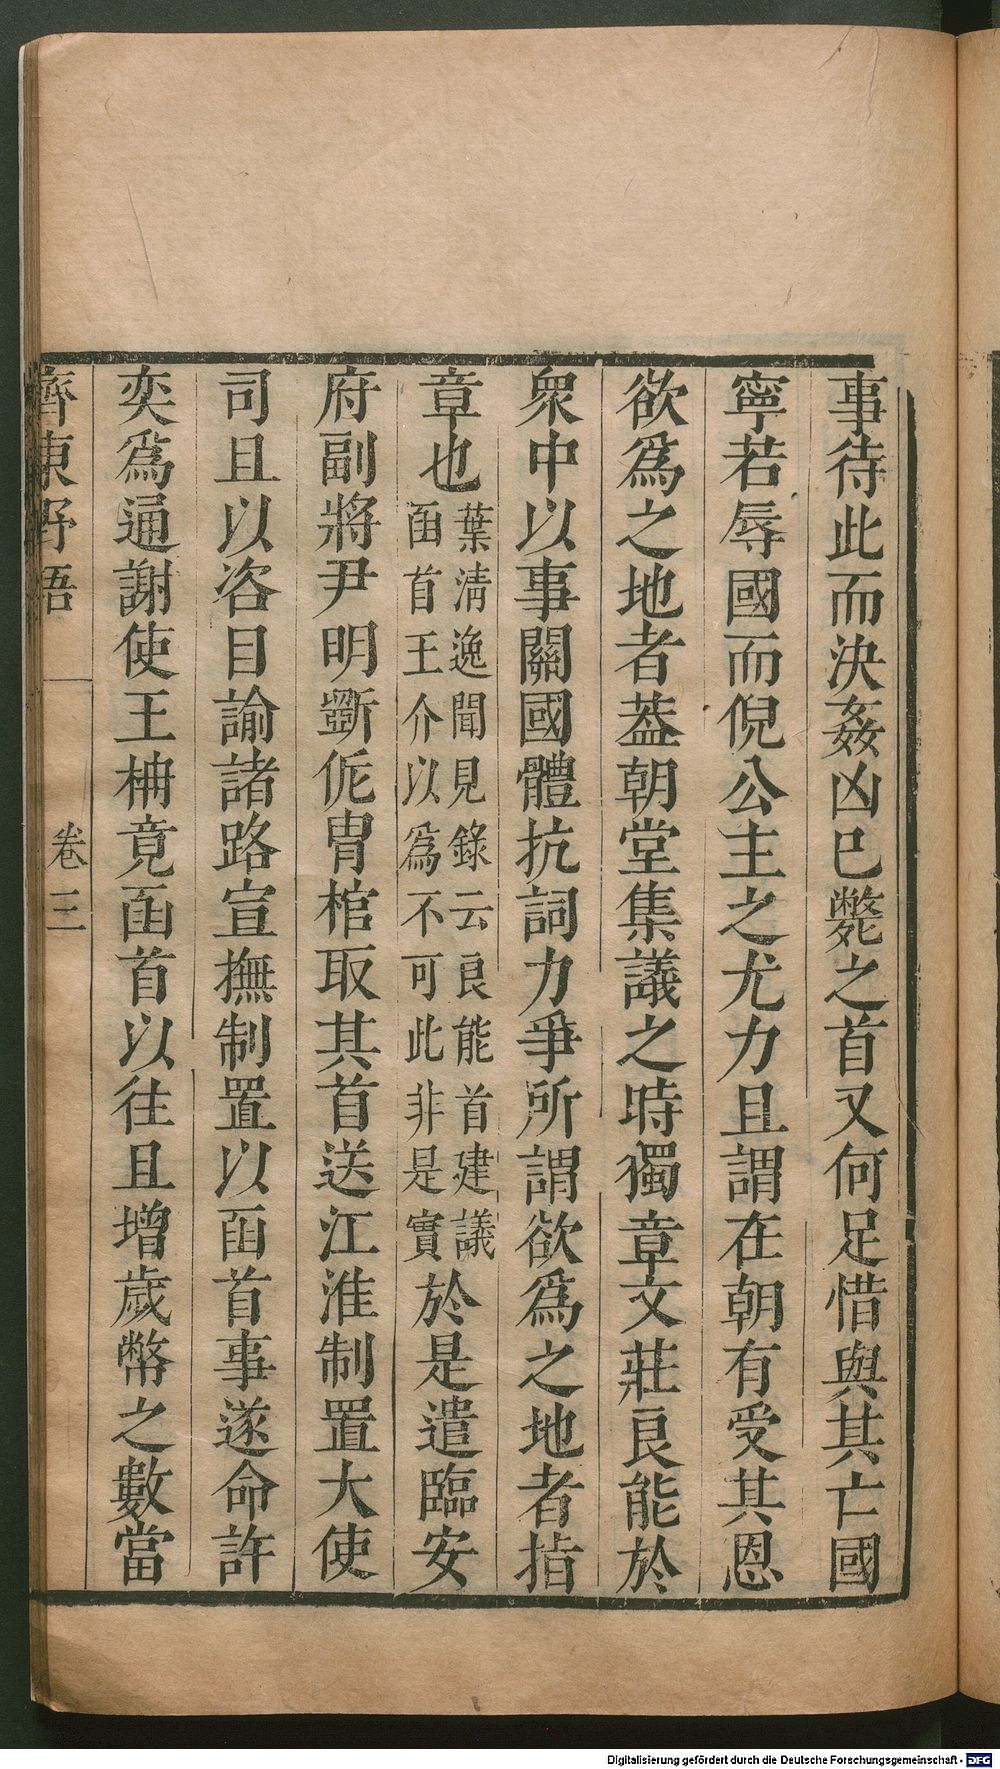 事待此而決姦凶已斃之首又何足惜與其亡國
寧若辱國而倪公主之尤力且謂在朝有受其恩
欲為之地者葢朝堂集議之時獨章文莊良能於
衆中以事關國體抗詞力爭所謂欲為之地者指
章也葉清逸聞見錄云良能首建議函首王介以為不可此非是實於是遣臨安
府副將尹明斵侂冑棺取其首送江淮制置大使
司且以咨目諭諸路宣撫制置以函首事遂命許
奕為通謝使王柟竟函首以往且增歲幣之數當
齊東野語 卷三
Digitalisierung gefördert durch die Deutsche Forschungsgemeinschaft - DFG